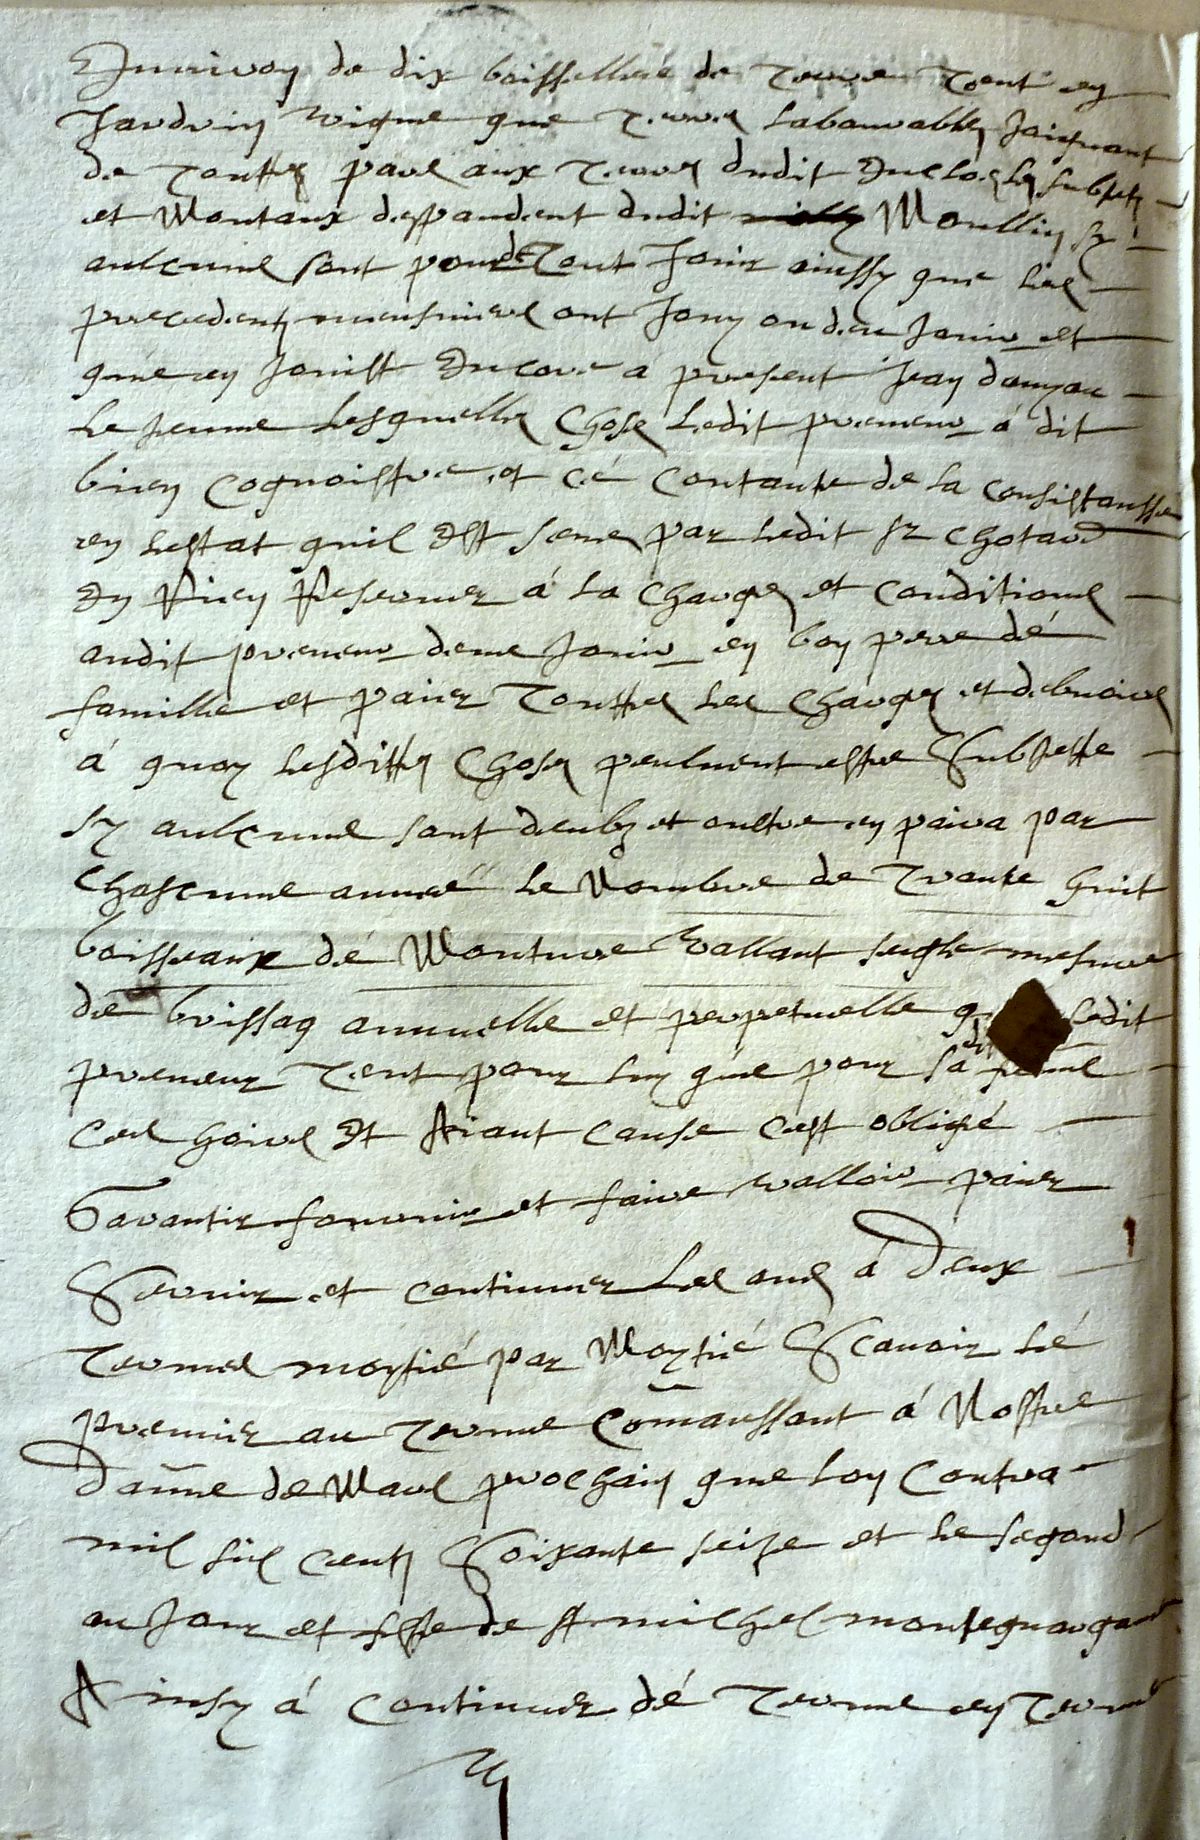 Anviron de dix boissellées de terre tent en
Jardrin vigne que terres labourables joignant
de touttes pars aux terres dudit Enclos les subjets
et Moutaux deppandent dudit Moullin sy
aulcunes sont pour de tout Jouir ainssy que les
precedents meusniers ont Jouy ou deu Jouir et
que en Jouist Encore a present Jean
le Jeune lesquelles Choses Ledit preneur a dit
bien cognoistre et cé contante de la consistansse
en lestat quil Est sene par Ledit Sr Chotard
En Rien Reserver á la Charges et conditions
audit preneur dene Jouir en bon pere dé
famille et paier touttes les charges et debvoirs
á quoy lesdittes Choses peulvent estre Subjette
sy aulcunes sont deubz et oultre en paira par
Chascunne année le Nombre de trante huit
boisseaux dé Mouture vallant seigle mesure
dé brissaq annuelle et perpetuelle ledit
preneur tent pour luy que pour sa ditte femme
ces hoirs Et Aiant cause cest obligé
Garantir fournir et faire valloir paier
Servir et continuer les ans á Deux
termes moytié par Moytié Scavoir lé
premier au terme comanssant á Nostre
Damme de Mars prochain que lon contra
mil six cents Soixante seize et le segond
au Jour et feste de St michel montegnargane
Ainsy á continuer dé terme en terme